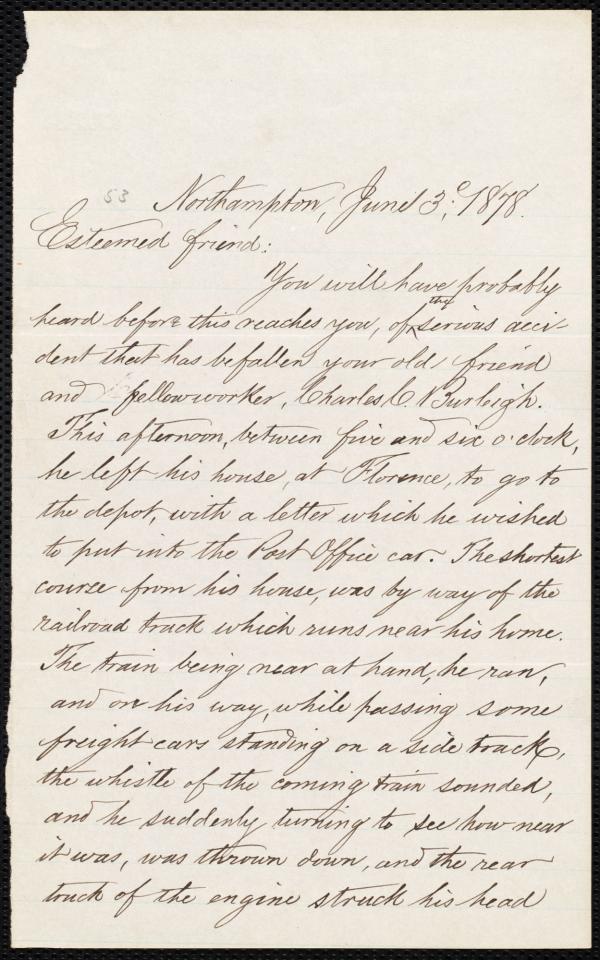 53
Northampton, June 3d, 1878.
Esteemed friend:
You will have probably
heard before this reaches you, of the serious acci-
dent that has befallen your old friend
and fellow worker, Charles C Burleigh.
This afternoon, between five and six o'clock,
he left his house, at Florence, to go to
the depot, with a letter which he wished
to put into the Post Office car. The shortest
course from his house, was by way of the
railroad track which runs near his home.
The train being near at hand, he ran,
and on his way, while passing some
freight cars standing on a side track,
the whistle of the coming train sounded,
and he suddenly turning to see how near
it was, was thrown down, and the rear
truck of the engine struck his head